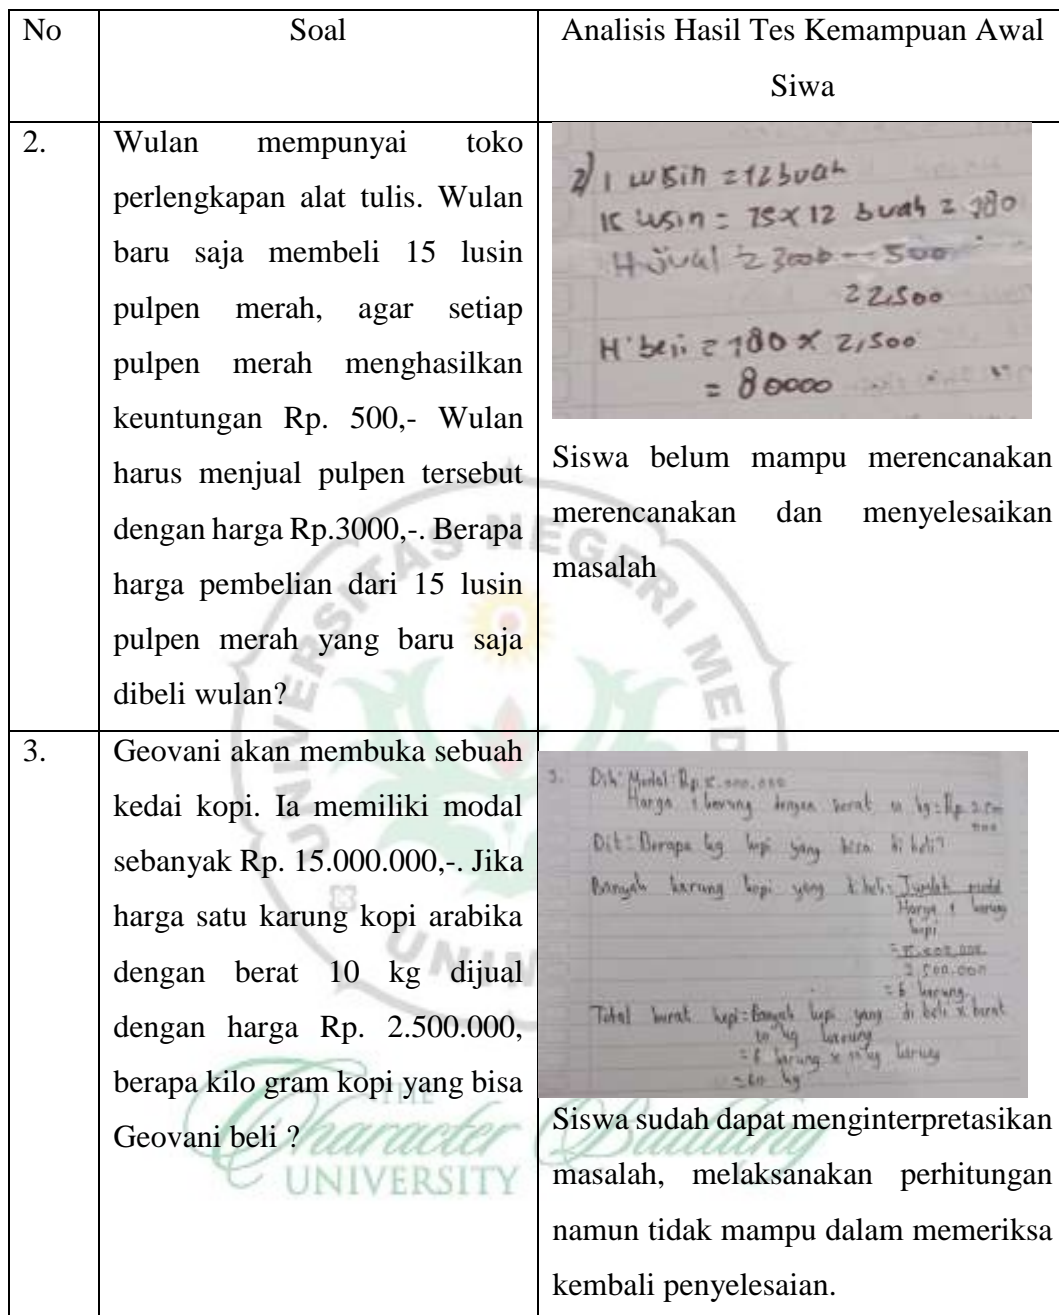 No
Soal
Analisis Hasil Tes Kemampuan Awal
Siwa
2.
Wulan mempunyai toko
perlengkapan alat tulis. Wulan
baru saja membeli 15 lusin
pulpen merah, agar setiap
pulpen merah menghasilkan
keuntungan Rp. 500,- Wulan
harus menjual pulpen tersebut
dengan harga Rp.3000,-. Berapa
harga pembelian dari 15 lusin
pulpen merah yang baru saja
dibeli wulan?
2) 1 lusin = 12 buah
15 lusin = 15 x 12 buah = 180
H jual = 3000 - 500
= 2,500
H beli = 180 x 2,500
= 80000
Siswa belum mampu merencanakan
merencanakan dan menyelesaikan
masalah
3.
Geovani akan membuka sebuah
kedai kopi. Ia memiliki modal
sebanyak Rp. 15.000.000,-. Jika
harga satu karung kopi arabika
dengan berat 10 kg dijual
dengan harga Rp. 2.500.000,
berapa kilo gram kopi yang bisa
Geovani beli ?
3. Dik: Modal: Rp. 15.000.000
Harga 1 karung dengan berat 10 kg = Rp. 2.500
000
Dit: Berapa kg kopi yang bisa di beli?
Banyak karung kopi yang di beli = Jumlah modal
Harga 1 karung
kopi
= 15.000.000
2.500.000
= 6 karung
Total berat kopi = Banyak kopi yang di beli x berat
10 kg karung
= 6 karung x 10 kg karung
= 60 kg
Siswa sudah dapat menginterpretasikan
masalah, melaksanakan perhitungan
namun tidak mampu dalam memeriksa
kembali penyelesaian.
UNIVERSITAS NEGERI MED
UNIM
THE
Character Building
UNIVERSITY